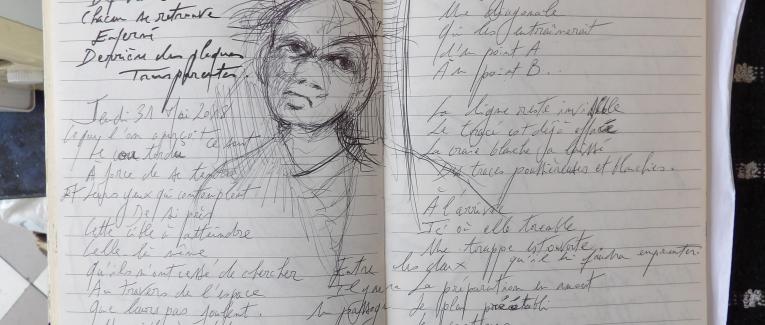 Chacun se retrouve
Enfermé
Derrière des plaques
Transparentes.
Jeudi 31 Mai 2018
Ce que l'on aperçoit ce sont
Le cou tordu
A force de se tendre
Et leurs yeux qui contemplent
De si près
Cette cible à atteindre
Celle là même
Qu'ils n'ont cessé de chercher
Au travers de l'espace
Que leurs pas foulent.
Une diagonale
qui les entraînerait
d'un point A
À un point B...
La ligne reste invisible
Le tracé est déjà effacé
La craie blanche a laissé
Des traces poussiéreuses et blanches.
À l'arrivée
Ici où elle
Une trappe est ouverte
qu'il lui faudra emprunter
Entre les deux
Il y aura La préparation en
Un passage Le plan préétabli